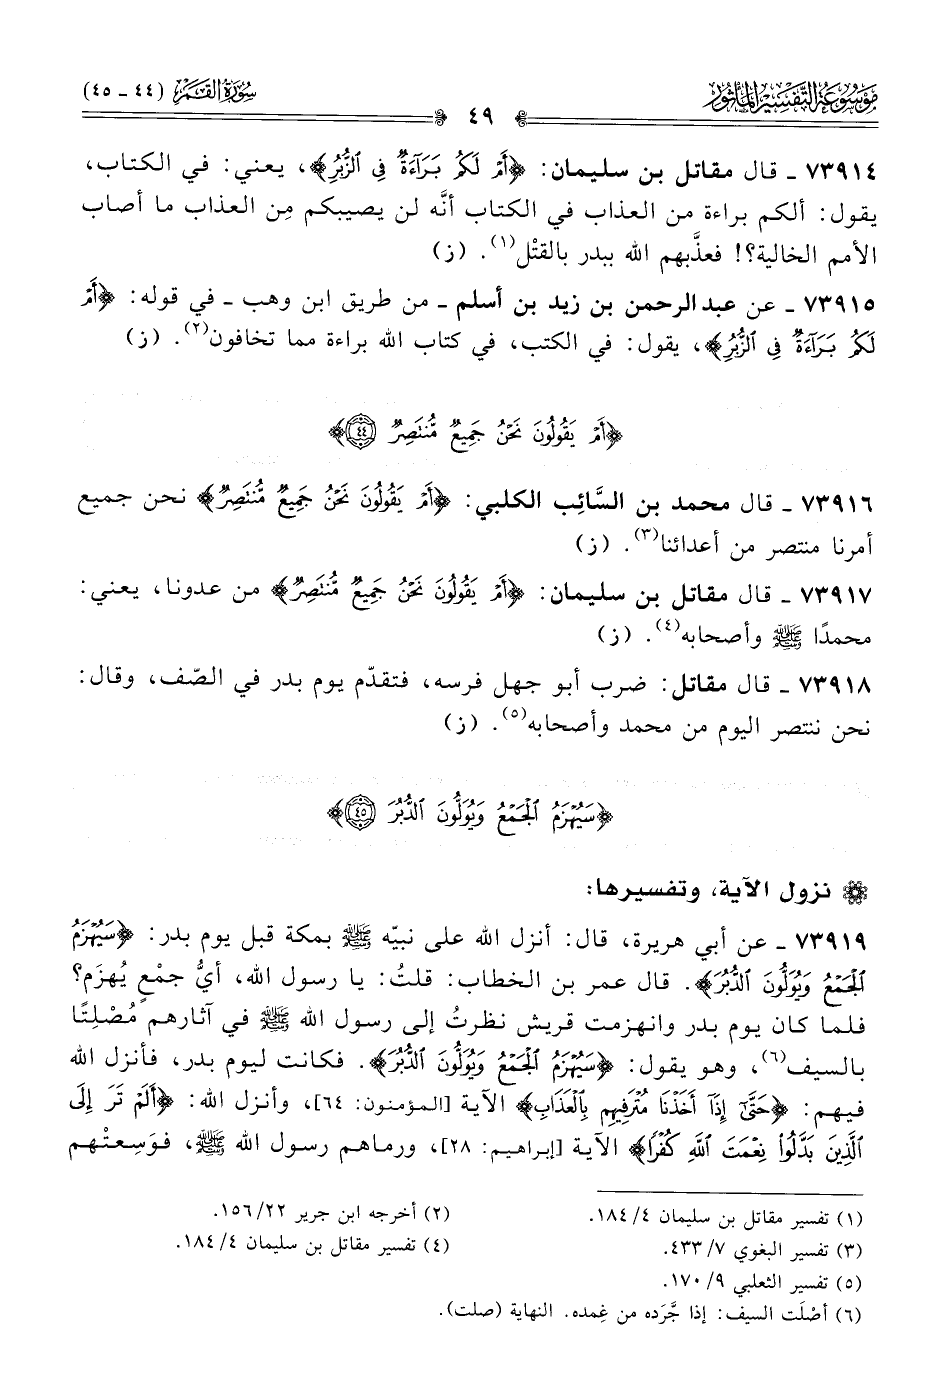 موسوعة التفسير المأثور
سورة القمر (٤٤ - ٤٥)
٤٩
٧٣٩١٤ - قال مقاتل بن سليمان: ﴿أَمْ لَكُم بَرَآءَةٌ فِي ٱلزُّبُرِ﴾، يعني: في الكتاب،
يقول: ألكم براءة من العذاب في الكتاب أنَّه لن يصيبكم مِن العذاب ما أصاب
الأمم الخالية؟! فعذَّبهم الله ببدر بالقتْل(١). (ز)
٧٣٩١٥ - عن عبد الرحمن بن زيد بن أسلم - من طريق ابن وهب - في قوله: ﴿أَمْ
لَكُم بَرَآءَةٌ فِي ٱلزُّبُرِ﴾، يقول: في الكتب، في كتاب الله براءة مما تخافون(٢). (ز)
﴿أَمْ يَقُولُونَ نَحْنُ جَمِيعٌ مُّنتَصِرٌ ٤٤﴾
٧٣٩١٦ - قال محمد بن السَّائِب الكلبي: ﴿أَمْ يَقُولُونَ نَحْنُ جَمِيعٌ مُّنتَصِرٌ﴾ نحن جميع
أمرنا منتصر من أعدائنا(٣). (ز)
٧٣٩١٧ - قال مقاتل بن سليمان: ﴿أَمْ يَقُولُونَ نَحْنُ جَمِيعٌ مُّنتَصِرٌ﴾ من عدونا، يعني:
محمدًا ﷺ وأصحابه(٤). (ز)
٧٣٩١٨ - قال مقاتل: ضرب أبو جهل فرسه، فتقدّم يوم بدر في الصّف، وقال:
نحن ننتصر اليوم من محمد وأصحابه(٥). (ز)
﴿سَيُهْزَمُ ٱلْجَمْعُ وَيُوَلُّونَ ٱلدُّبُرَ ٤٥﴾
نزول الآية، وتفسيرها:
٧٣٩١٩ - عن أبي هريرة، قال: أنزل الله على نبيّه ﷺ بمكة قبل يوم بدر: ﴿سَيُهْزَمُ
ٱلْجَمْعُ وَيُوَلُّونَ ٱلدُّبُرَ﴾. قال عمر بن الخطاب: قلتُ: يا رسول الله، أيُّ جمْعٍ يُهزَم؟
فلما كان يوم بدر وانهزمت قريش نظرتُ إلى رسول الله ﷺ في آثارهم مُصْلِتًا
بالسيف(٦)، وهو يقول: ﴿سَيُهْزَمُ ٱلْجَمْعُ وَيُوَلُّونَ ٱلدُّبُرَ﴾. فكانت ليوم بدر، فأنزل الله
فيهم: ﴿حَتَّىٰٓ إِذَآ أَخَذْنَا مُتْرَفِيهِم بِٱلْعَذَابِ﴾ الآية [المؤمنون: ٦٤]، وأنزل الله: ﴿أَلَمْ تَرَ إِلَى
ٱلَّذِينَ بَدَّلُواْ نِعْمَتَ ٱللَّهِ كُفْرًا﴾ الآية [إبراهيم: ٢٨]، ورماهم رسول الله ﷺ، فوَسِعتْهم
(١) تفسير مقاتل بن سليمان ٤/ ١٨٤.
(٢) أخرجه ابن جرير ٢٢/ ١٥٦.
(٣) تفسير البغوي ٧/ ٤٣٣.
(٤) تفسير مقاتل بن سليمان ٤/ ١٨٤.
(٥) تفسير الثعلبي ٩/ ١٧٠.
(٦) أصْلَت السيف: إذا جَّرَده من غِمده. النهاية (صلت).